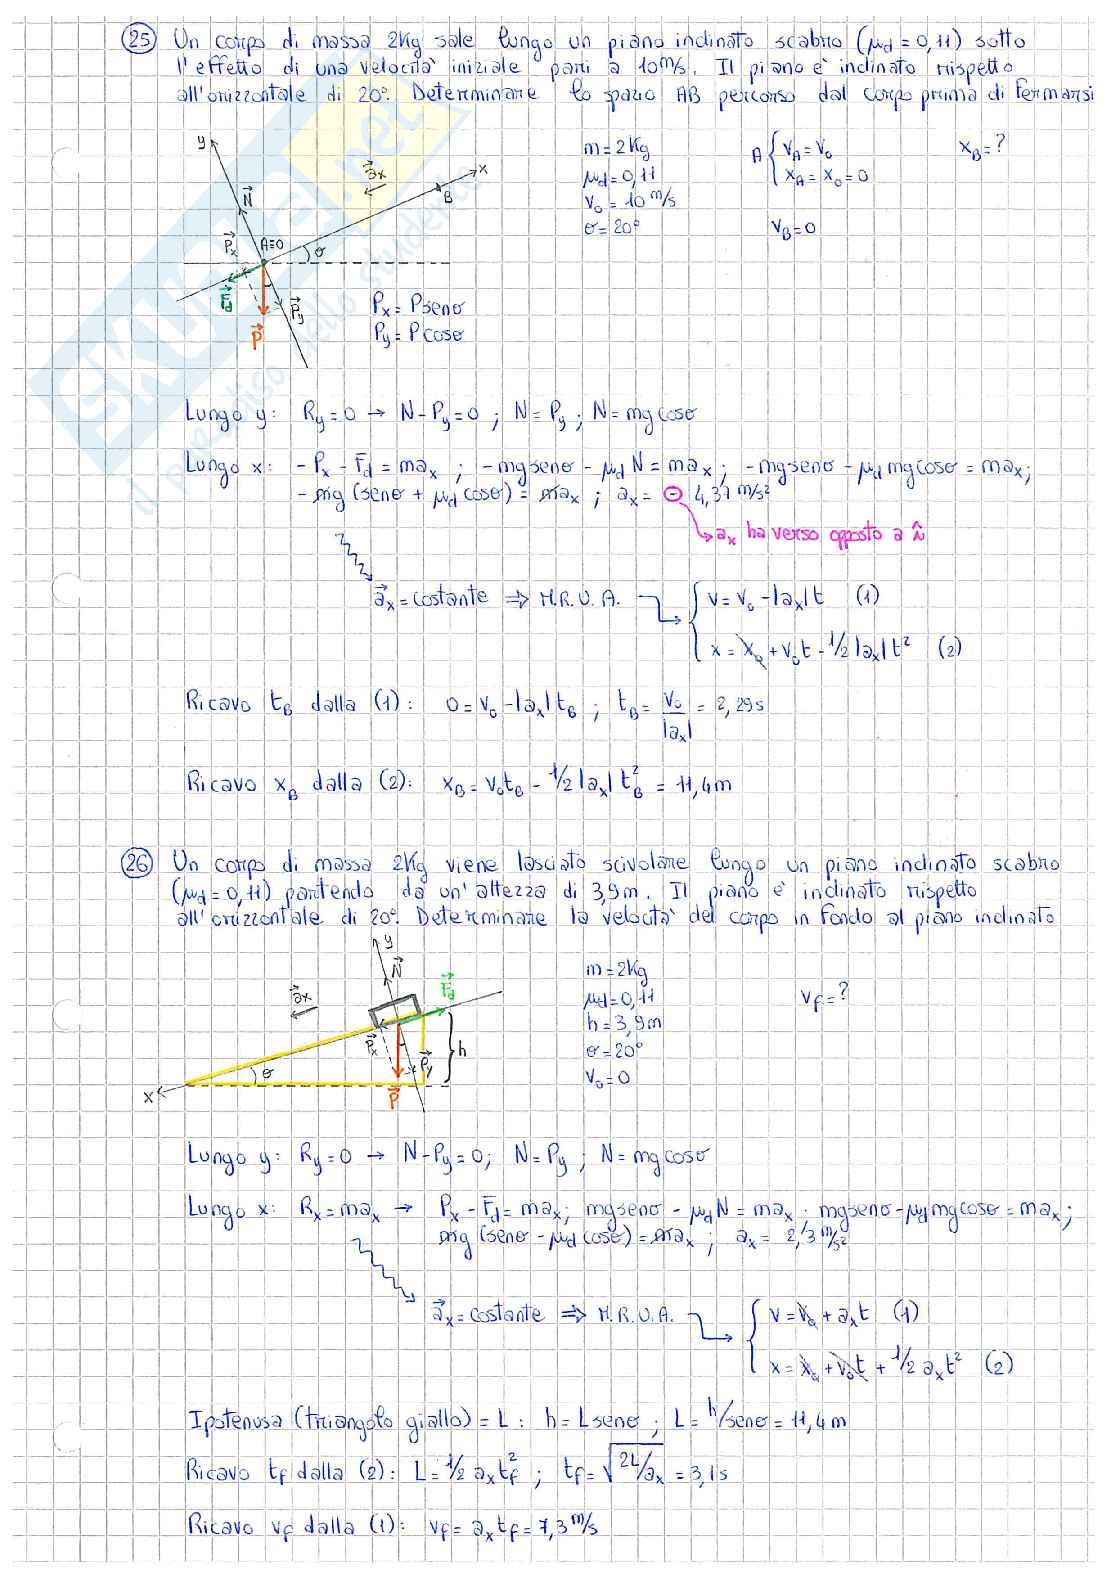 25 Un corpo di massa 2Kg sale lungo un piano inclinato scabro (μd = 0,11) sotto
l'effetto di una velocità iniziale pari a 10 m/s. Il piano è inclinato rispetto
all'orizzontale di 20°. Determinare lo spazio AB percorso dal corpo prima di fermarsi
m = 2Kg
μd = 0,11
v₀ = 10 m/s
θ = 20°
A { vA = v₀
xA = x₀ = 0
vB = 0
xB = ?
y
N
Px
A≡0
θ
ax
x
B
Fd
Py
P
Px = P senθ
Py = P cosθ
Lungo y: Ry = 0 → N - Py = 0 ; N = Py ; N = mg cosθ
Lungo x: - Px - Fd = max ; - mg senθ - μd N = max ; - mg senθ - μd mg cosθ = max ;
- mg (senθ + μd cosθ) = max ; ax = - 4,37 m/s²
ax ha verso opposto a î
ax = costante ⇒ M.R.U.A.
v = v₀ - |ax| t (1)
x = x₀ + v₀t - 1/2 |ax| t² (2)
Ricavo tB dalla (1): 0 = v₀ - |ax| tB ; tB = v₀/|ax| = 2,29 s
Ricavo xB dalla (2): xB = v₀tB - 1/2 |ax| tB² = 11,4 m
26 Un corpo di massa 2Kg viene lasciato scivolare lungo un piano inclinato scabro
(μd = 0,11) partendo da un'altezza di 3,9 m. Il piano è inclinato rispetto
all'orizzontale di 20°. Determinare la velocità del corpo in fondo al piano inclinato
m = 2Kg
μd = 0,11
h = 3,9 m
θ = 20°
v₀ = 0
vf = ?
y
N
Fd
ax
Px
Py
h
θ
x
P
Lungo y: Ry = 0 → N - Py = 0 ; N = Py ; N = mg cosθ
Lungo x: Rx = max → Px - Fd = max ; mg senθ - μd N = max ; mg senθ - μd mg cosθ = max ;
mg (senθ - μd cosθ) = max ; ax = 2,3 m/s²
ax = costante ⇒ M.R.U.A.
v = v₀ + axt (1)
x = x₀ + v₀t + 1/2 axt² (2)
Ipotenusa (triangolo giallo) = L : h = L senθ ; L = h/senθ = 11,4 m
Ricavo tf dalla (2): L = 1/2 axtf² ; tf = √2L/ax = 3,1 s
Ricavo vf dalla (1): vf = axtf = 7,3 m/s
skuola.net
il paradiso dello studente